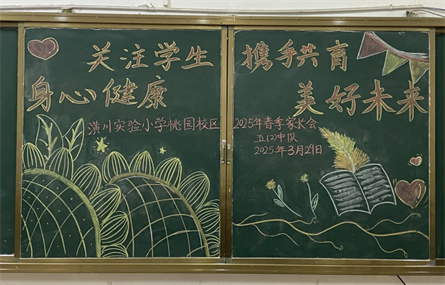 关注学生
身心健康
潢川实验小学桃园校区
携手共育
美好未来
2025年春季家长会
五(2)中队
2025年3月21日